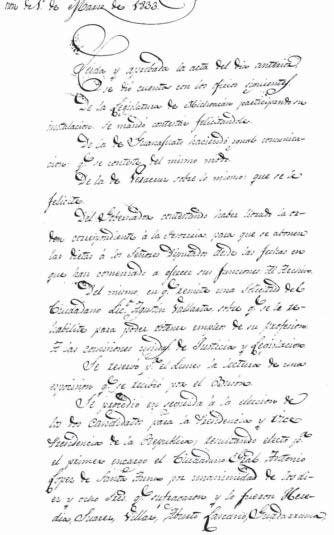 de 1º de Marzo de 1833.
Leida y aprobada la acta del dia anterior,
Se dió cuenta con los oficios siguientes.
De la Legislatura de Michoacán participando su
instalacion. Se mandó contestar felicitandola.
De la de Guanajuato haciendo igual comunica-
cion. qe. se conteste del mismo modo.
De la de Veracruz sobre lo mismo: que se le
felicite.
Del Gobernador contestando haber librado la or-
den correspondiente á la Tesorería para que se abonen
las dietas á los Señores Diputados desde las fechas en
que han comenzado a ejercer sus funciones. Al Archivo.
Del mismo en qe. remite una solicitud del
Ciudadano Lic. Agustin sobre qe. se le ha-
bilite para poder obtener empleo de su profesion
A las comisiones unidas de Justicia y Legislacion
Se reservó pa. el lunes la lectura de una
esposicion qe. se recibió por el Correo.
Se procedió en seguida á la eleccion de
los dos Candidatos para la Presidencia y Vice
Presidencia de la Republica, resultando electo pa.
el primer encargo el Ciudadano Gral. Antonio
Lopez de Santa Anna por unanimidad de los di-
ez y ocho Sres. qe. sufragaron y lo fueron Here-
dia, Suarez, Villar, Lazcano, Guadarrama